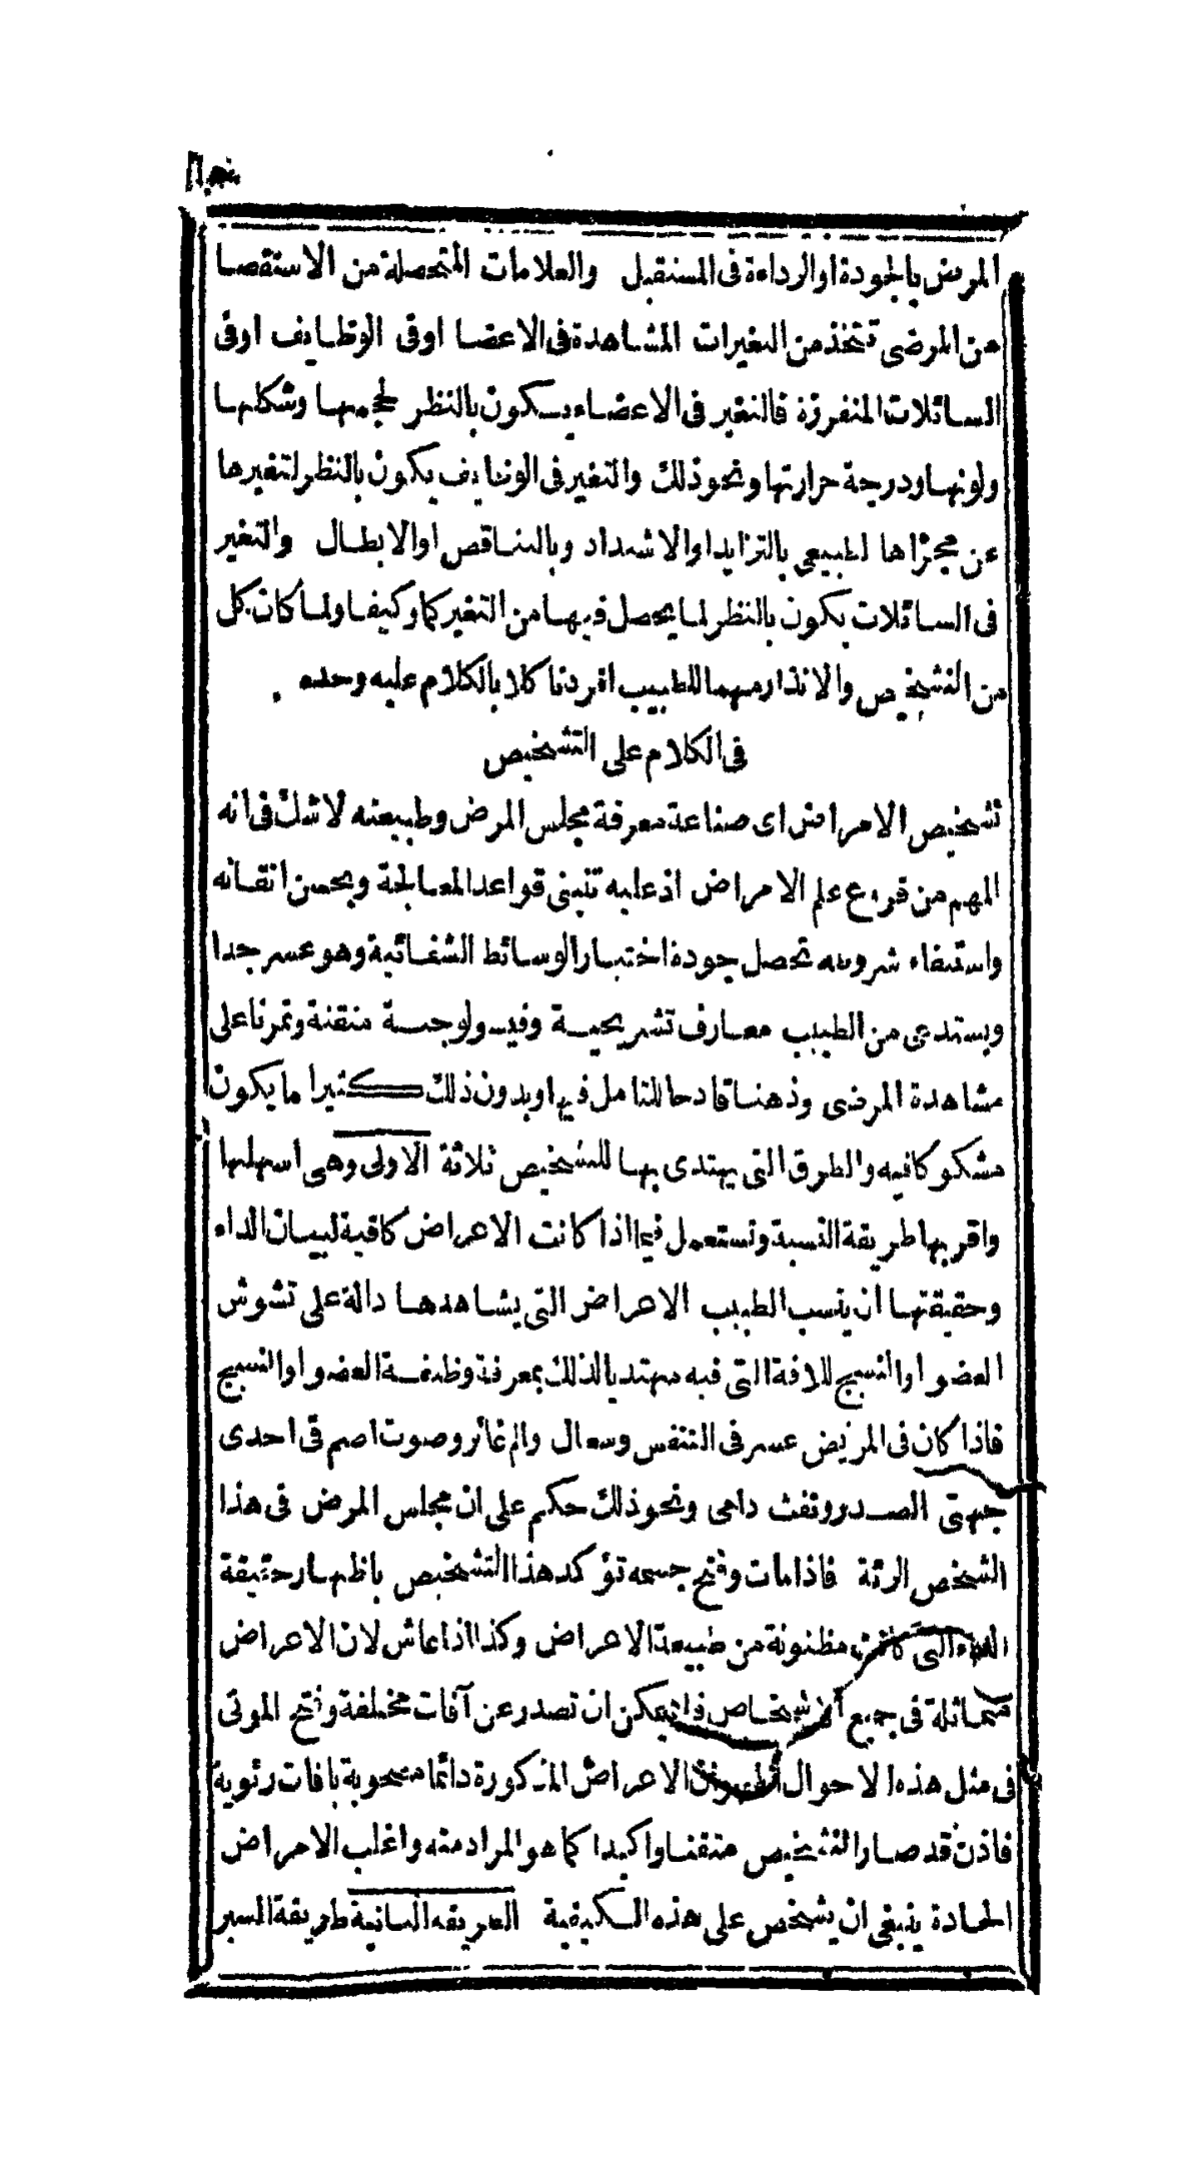 المرض بالجودة او الرداءة فى المستقبل والعلامات المتحصلة من الاستقصا
من المرضى تتخذ من التغيرات المشاهدة فى الاعضا اوفى الوظايف اوفى
السائلات المنفرزة فالتغير فى الاعضاء يكون بالنظر لحجمها وشكلها
ولونها ودرجة حرارتها ونحو ذلك والتغير فى الوظايف يكون بالنظر لتغيرها
عن مجراها الطبيعى بالتزايد او الاشتداد وبالتناقص او الابطال والتغير
فى السائلات يكون بالنظر لما يحصل فيها من التغير كما وكيفا ولما كان كل
من التشخيص والانذار مهما للطبيب افردنا كلا بالكلام عليه وحده
فى الكلام على التشخيص
تشخيص الامراض اى صناعة معرفة مجلس المرض وطبيعته لا شك فى انه
المهم من فروع علم الامراض اذ عليه تنبنى قواعد المعالجة وبحسن اتقانه
واستيفاء شروطه تحصل جودة اختبار الوسائط الشفائية وهو عسر جدا
ويستدعى من الطبيب معارف تشريحية وفيسولوجية متقنة وتمرنا على
مشاهدة المرضى وذهنا قادحا للتامل فيها وبدون ذلك كثيرا ما يكون
مشكوكا فيه والطرق التى يهتدى بها للتشخيص ثلاثة الاولى وهى اسهلها
واقربها طريقة النسبة وتستعمل فيما اذا كانت الاعراض كافية لبيان الداء
وحقيقتها ان ينسب الطبيب الاعراض التى يشاهدها دالة على تشوش
العضو او النسيج للافة التى فيه مهتديا لذلك بمعرفة وظيفة العضو او النسيج
فاذا كان فى المريض عسر فى التنفس وسعال والم غائر وصوت اصم فى احدى
جهتى الصدر ونفث دامى ونحو ذلك حكم على ان مجلس المرض فى هذا
الشخص الرئة فاذا مات وفتح جسمه تؤكد هذا التشخيص باظهار حقيقة
الداء التى كانت مظنونة من طبيعة الاعراض وكذا اذا عاش لان الاعراض
متماثلة فى جميع الاشخاص فلا يمكن ان تصدر عن آفات مختلفة وفتح الموتى
فى مثل هذه الاحوال الاعراض المذكورة دائما مصحوبة بافات رئوية
فاذن قد صار التشخيص متقنا واكيدا كما هو المراد منه واغلب الامراض
الحادة ينبغى ان يشخص على هذه الكيفية الطريقه الثانية طريقة السبر